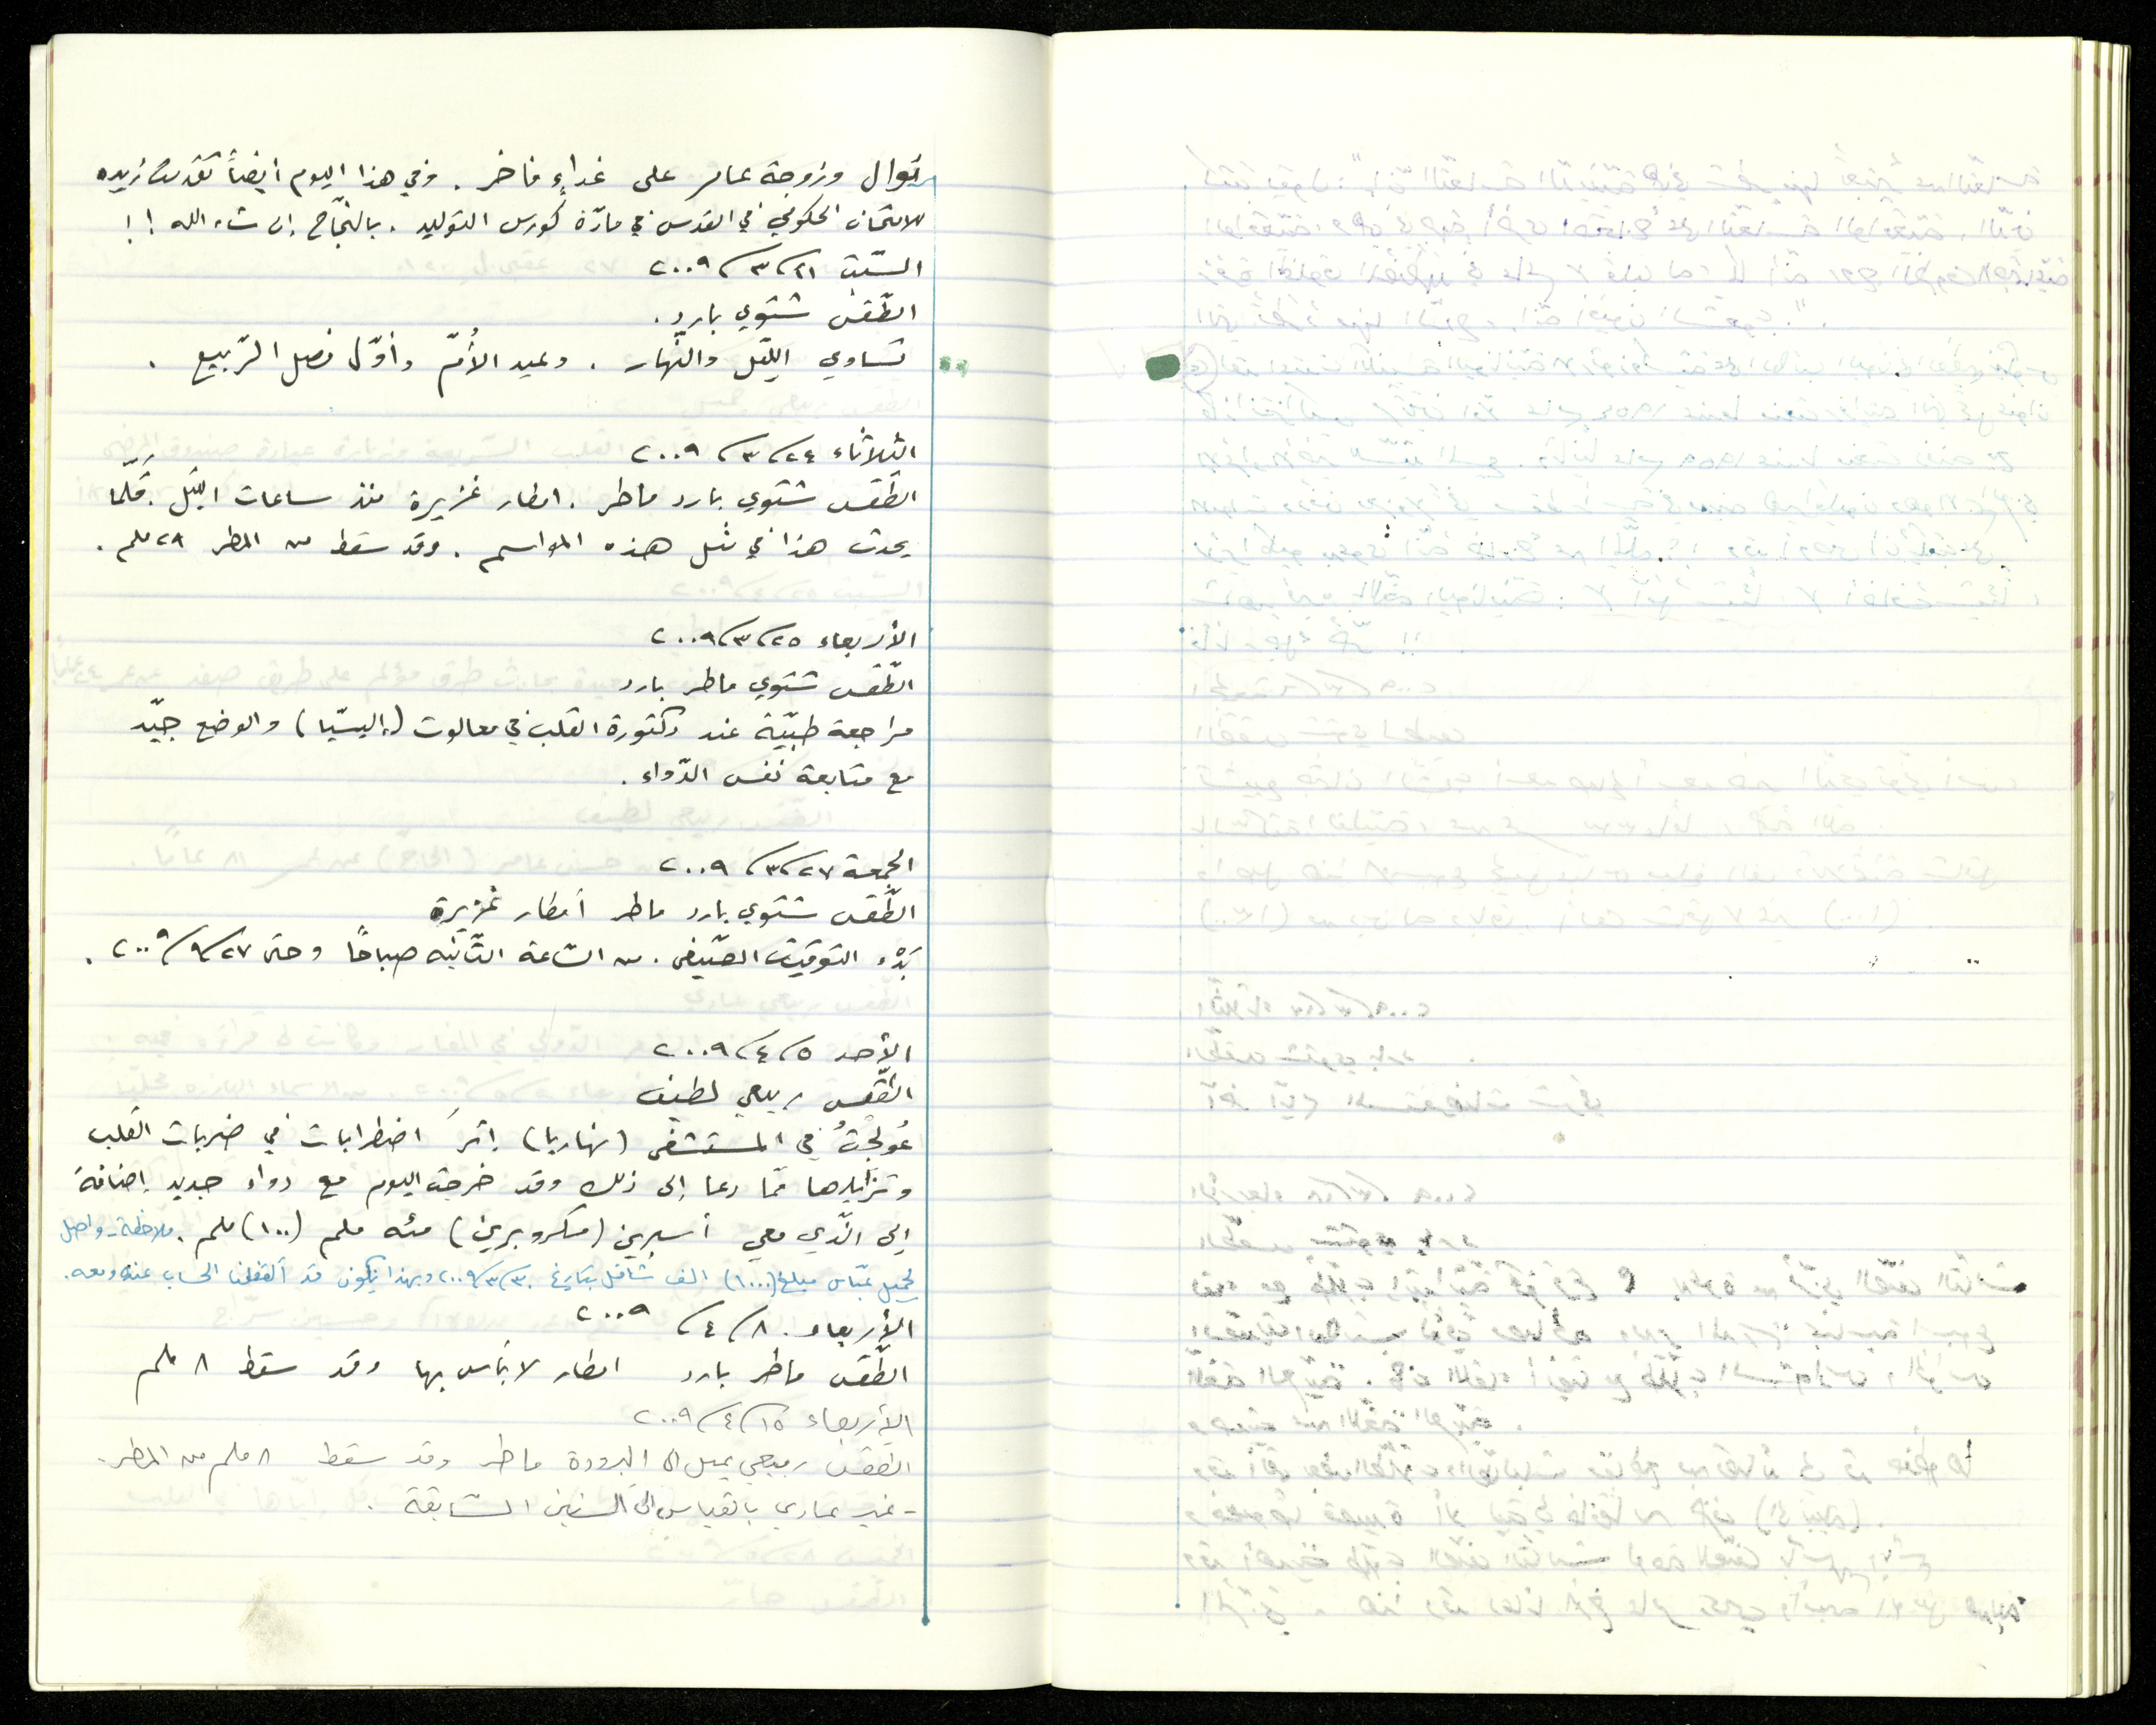 نوال وزوجة عامر على غداءٍ فاخر. وفي هذا اليوم أيضاً تقدمت زبيده
للامتحان الحكومي في القدس في مادّة كورس التوليد. بالنّجاح إن شاء الله!!
السّبت ٢١/٣/٢٠٠٩
الطّقس شتوي بارد.
تساوي الليّل والنّهار. وعيد الأُمّ وأوّل فصل الرّبيع.
الثلاثاء ٢٤/٣/٢٠٠٩
الطقس شتوي بارد ماطر. امطار غزيرة منذ ساعات الليّل. قلّما
يحدث هذا في مثل هذه المواسم. وقد سقط من المطر ٢٨ ملم.
الأربعاء ٢٥/٣/٢٠٠٩
الطّقس شتويّ ماطر بارد
مراجعة طبيّة عند دكتورة القلب في معالوت (إليسيّا) والوضع جيّد
مع متابعة نفس الدّواء.
الجمعة ٢٧/٣/٢٠٠٩
الطّقس شتوي بارد ماطر أمطار غزيرة
بَدْء التوقيت الصّيفي. من السّاعة الثّانيه صباحًا وحتى ٢٧/٩/٢٠٠٩.
الأحد ٥/٤/٢٠٠٩
الطّقس ربيعي لطيف
عُولجتُ في المستشفى (نهاريا) إثرَ اضطرابات في ضربات القلب
وتزايدها ممّا دعا إلى ذلك وقد خرجت اليوم مع دواء جديد إضافة
إلى الّذي معي أسبرين (مكروبرين) مئه ملم (١٠٠) ملم. ملاحظة - واصل
لجميل عبّاس مبلغ (١٠٠٠) الف شاقل بتاريخ ٣٠/٣/٢٠٠٩ وبهذا يكون قد أقفلنا الحساب عنده ومعه.
الأربعاء ٨/٤/٢٠٠٩
الطّقس ماطر بارد امطار لا بَأس بها وقد سقط ٨ ملم
الأربعاء ١٥/٤/٢٠٠٩
الطّقس ربيعي يميل الى البرودة ماطر وقد سقط ٨ ملم من المطر.
- غير عادي بالقياس إلى السنين السّابقة.